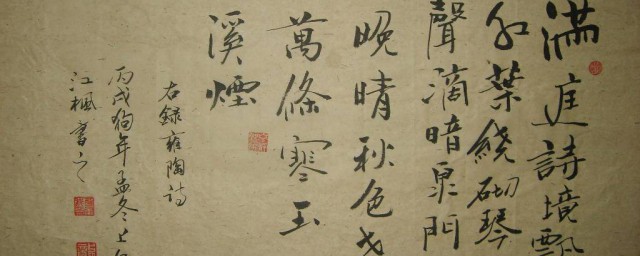 滿庭詩境飄
紅葉繞砌琴
聲滴暗泉門
晚晴秋色老
萬條寒玉
溪煙
右錄雍陶詩
丙戌狗年孟冬上
江楓書之